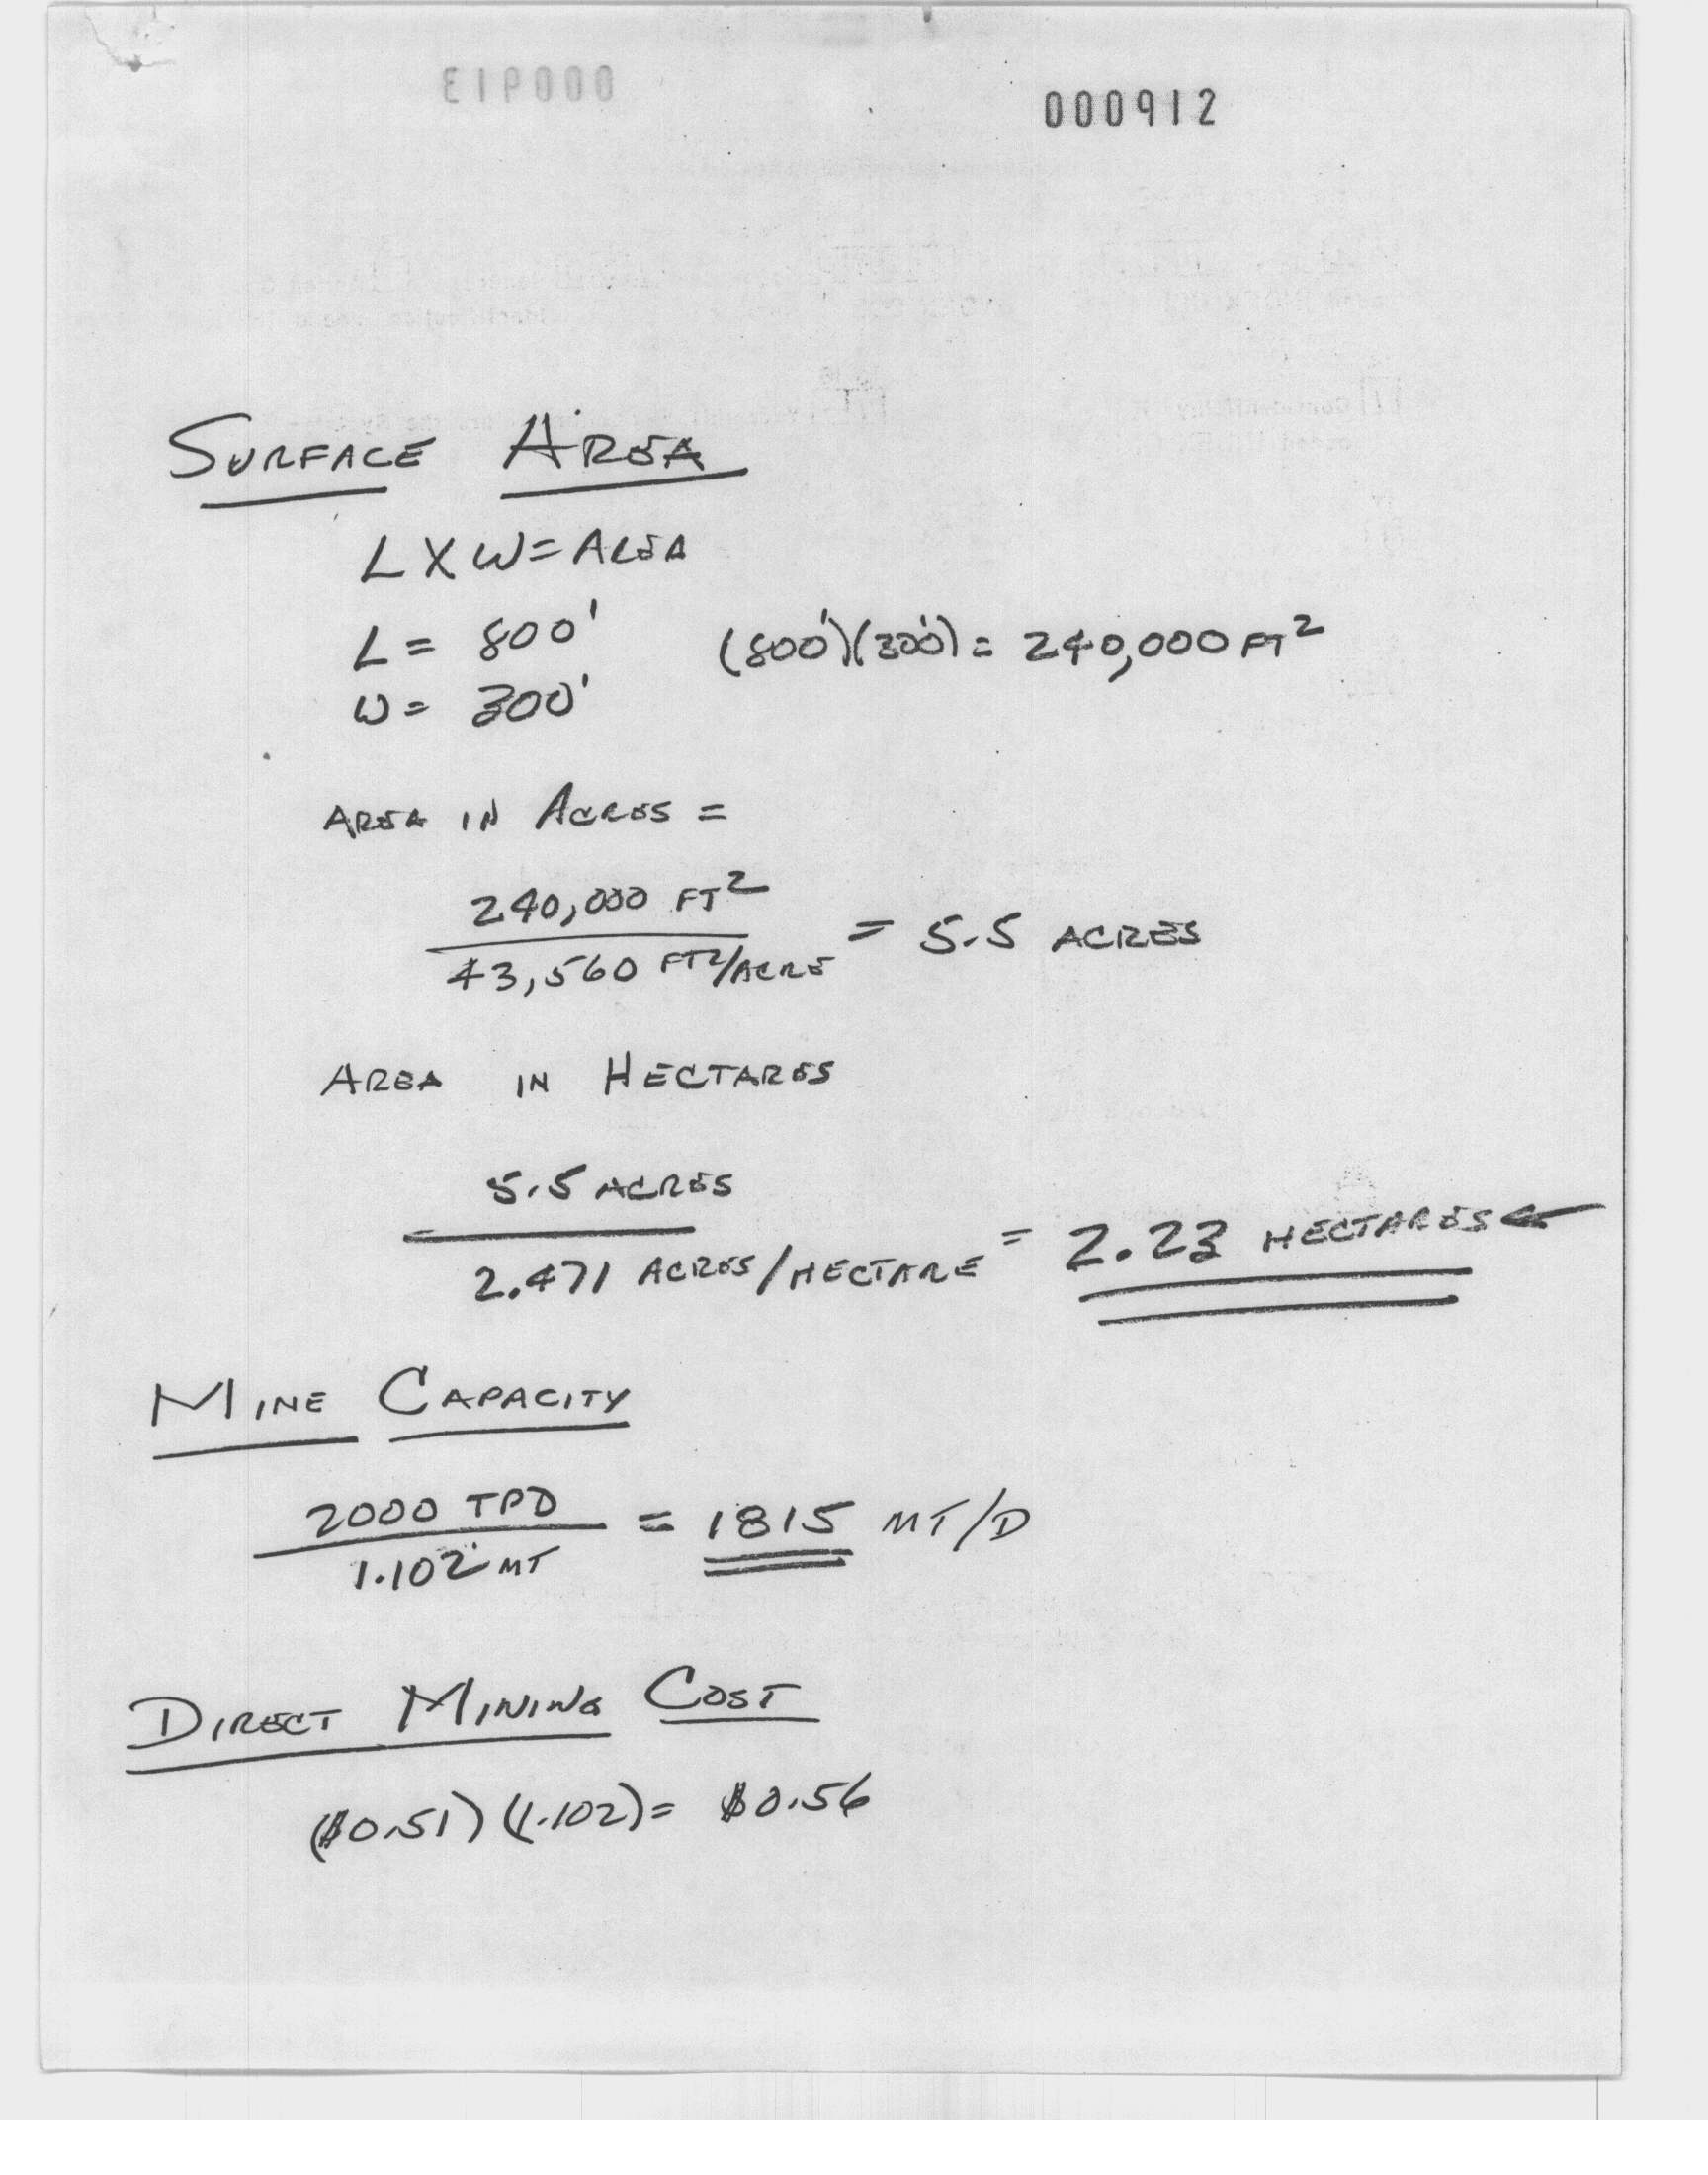 000912
SURFACE AREA
L X W = AREA
L = 800' (800')(300') = 240,000 FT²
W = 300'
AREA IN ACRES =
240,000 FT²
43,560 FT²/ACRE = 5.5 ACRES
AREA IN HECTARES
5.5 ACRES
2.471 ACRES/HECTARE = 2.23 HECTARES ←
MINE CAPACITY
2000 TPD
1.102 MT = 1815 MT/D
DIRECT MINING COST
($0.51)(1.102) = $0.56